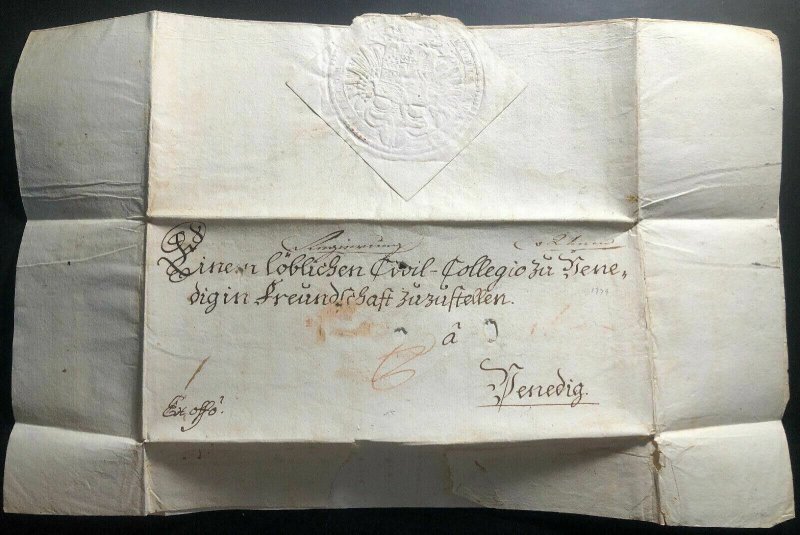 Regierung
Einem löblichen Civil-Collegio zu Vene-
dig in Freundschaft zuzustellen.
1779
â
Venedig.
Ex offô.